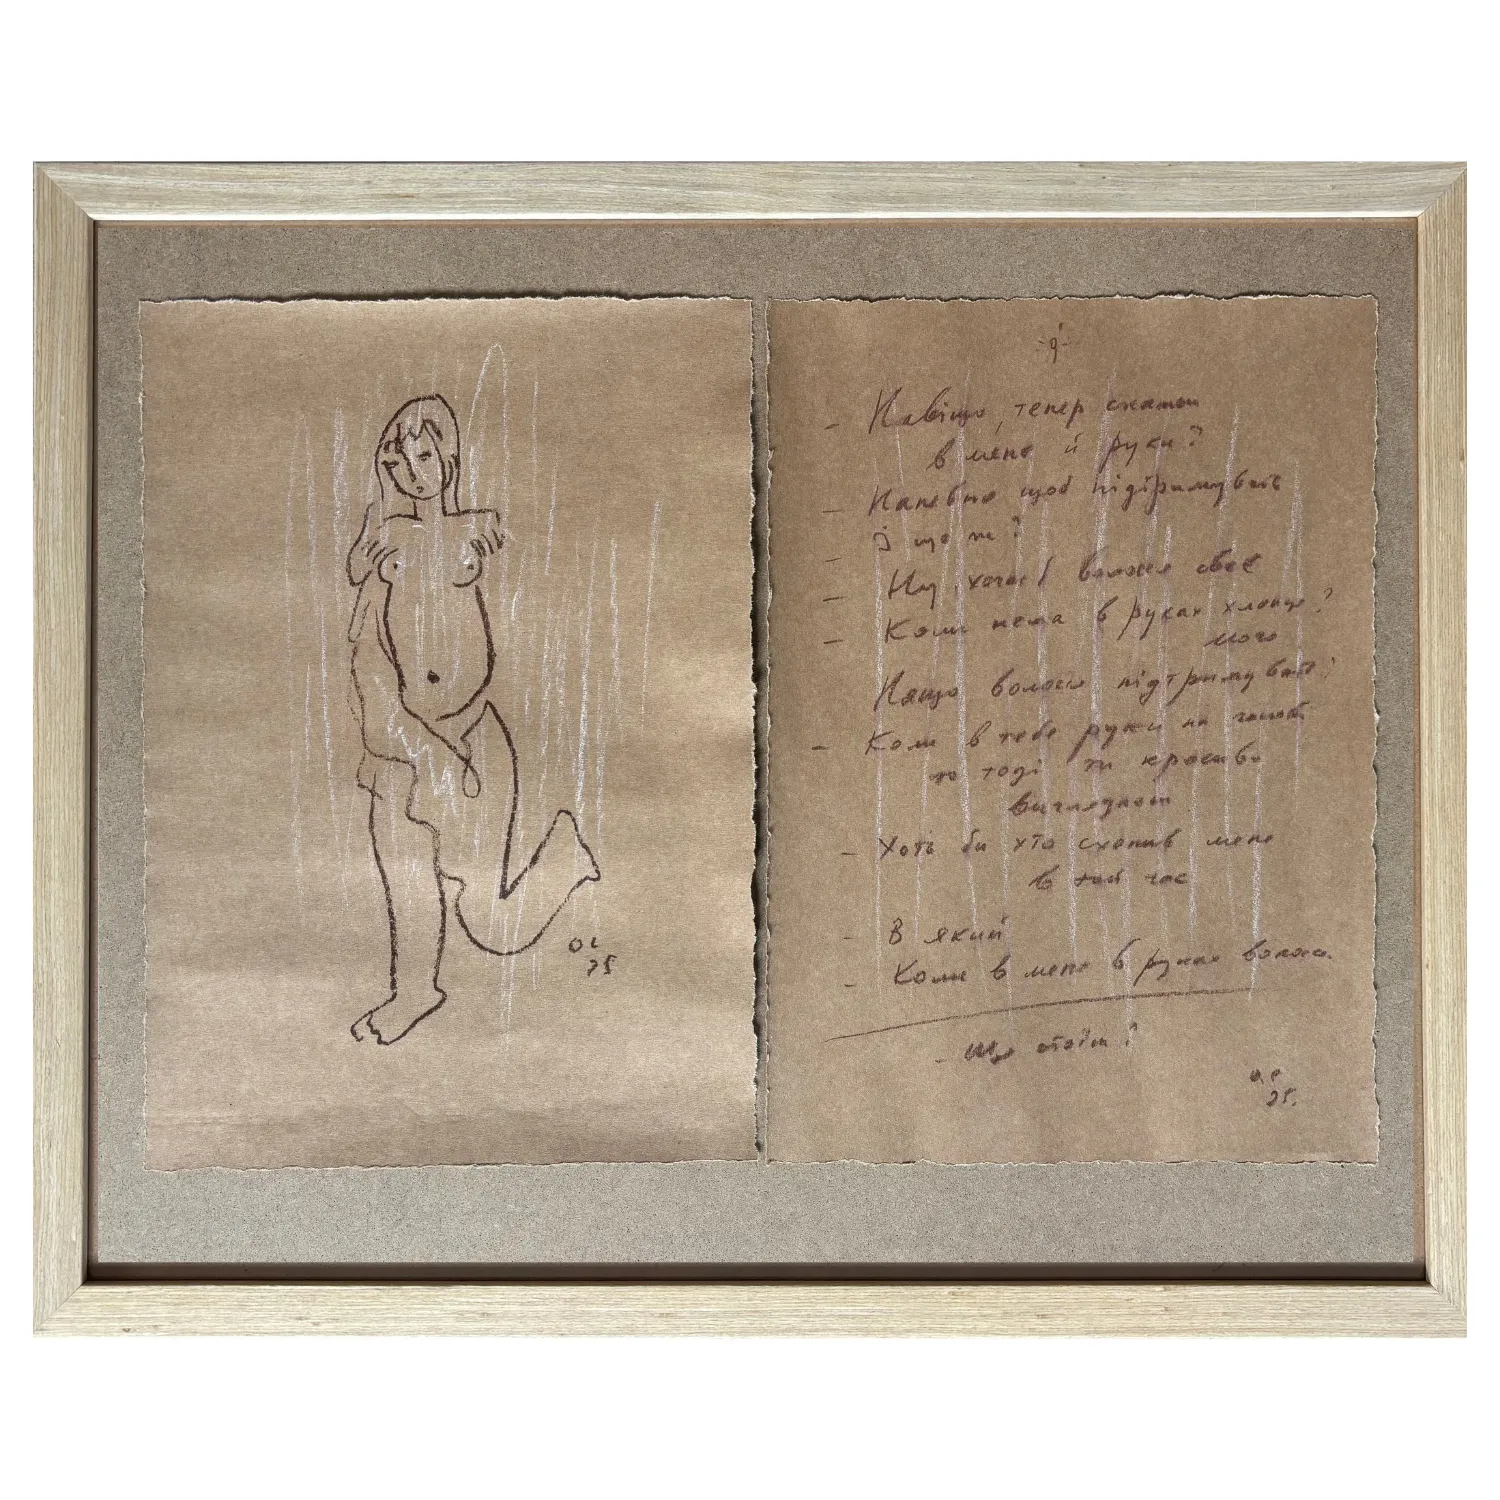 ОС
25
-9-
- Навіщо, тепер скажи
в мене й руки?
- Напевно щоб підтримувать
- І що ж?
- Ну, хоча б волосся своє
- Коли нема в руках хлопця?
мого
Нащо волосся підтримувать?
- Коли в тебе руки на
то тоді ти красиво
виглядаєш
- Хоть би хто схопив мене
в той час
- В який
- Коли в мене в руках волосся.
- Що стоїш?
О.С
25.